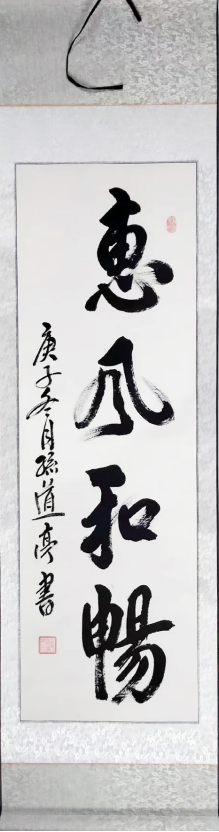 惠风和暢
庚子冬月孫道亭書